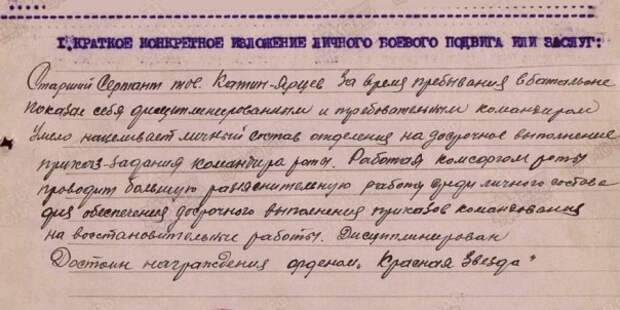 I. КРАТКОЕ КОНКРЕТНОЕ ИЗЛОЖЕНИЕ ЛИЧНОГО БОЕВОГО ПОДВИГА ИЛИ ЗАСЛУГ:
Старший Сержант тов. Катин-Ярцев за время пребывания в батальоне
показал себя дисциплинированным и требовательным командиром
Умело нацеливает личный состав отделения на досрочное выполнение
приказ-задания командира роты. Работая комсоргом роты
проводит большую разъяснительную работу среди личного состава
для обеспечения досрочного выполнения приказов командования
на восстановительные работы. Дисциплинирован
Достоин награждения орденом „Красная Звезда"